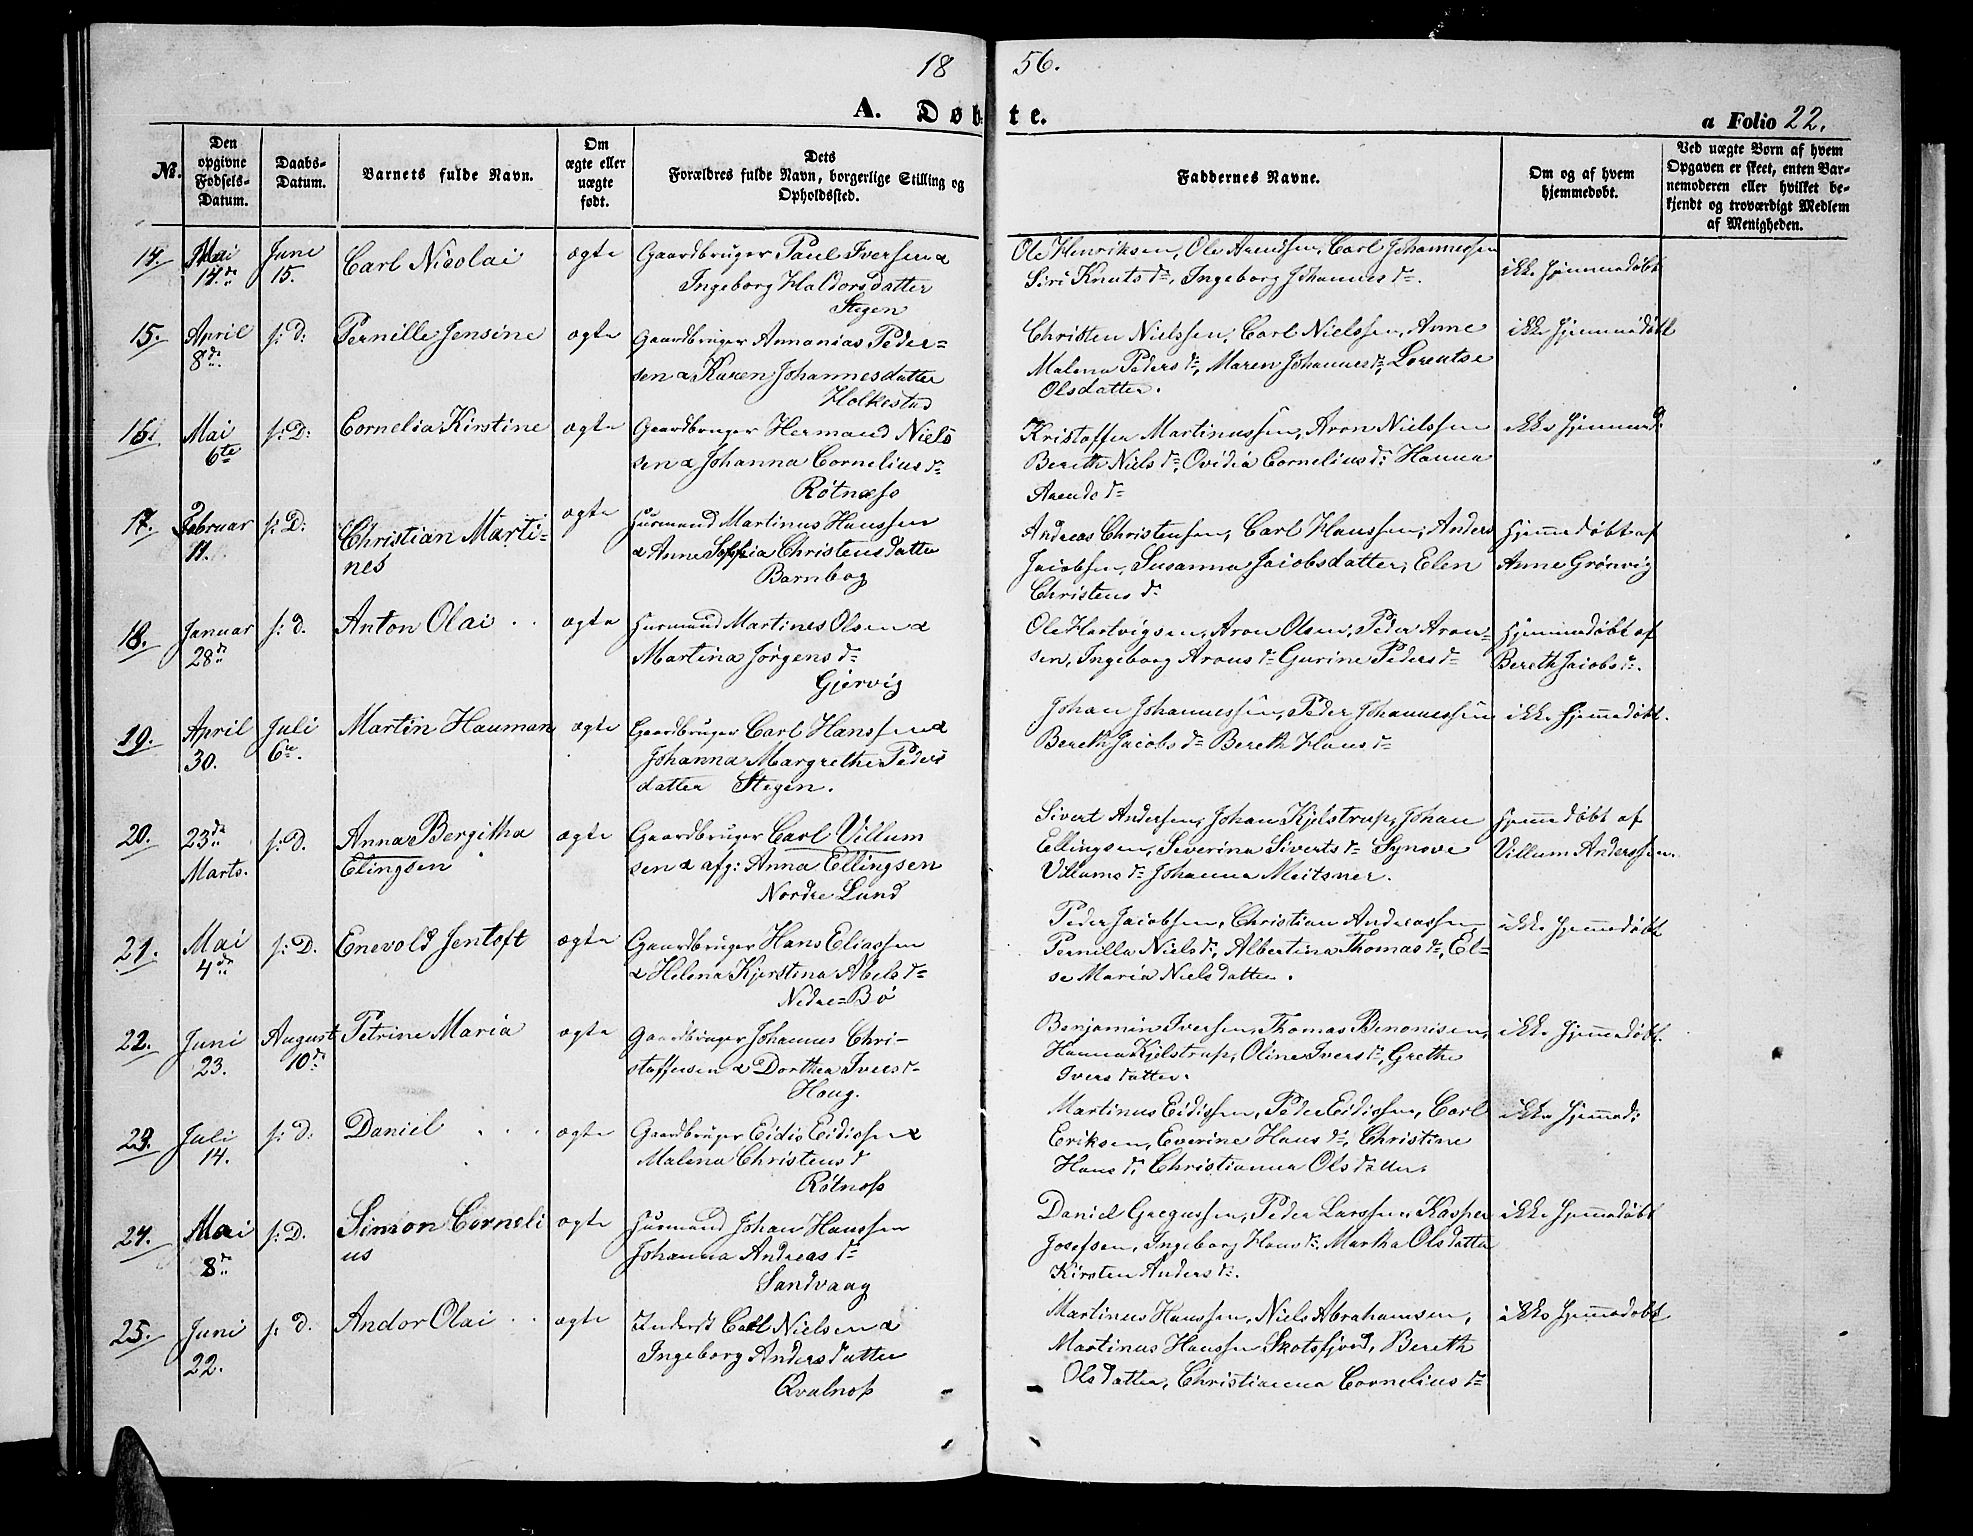 18 56.
A. Døbte.
a Folio 22.
No.
Den opgivne Fødsels-Datum.
Daabs-Datum.
Barnets fulde Navn.
Om ægte eller uægte født.
Dets Forældres fulde Navn, borgerlige Stilling og Opholdssted.
Faddernes Navne.
Om og af hvem hjemmedøbt.
Ved uægte Børn af hvem Opgaven er skeet, enten Barnemoderen eller hvilket bekjendt og troværdigt Medlem af Menigheden.
14. Mai 14de June 15. Carl Nicolai ægte Gaardbruger Paul Iversen &
Ingeborg Haldorsdatter
Stegen
Ole Henriksen, Ole Arentsen, Carl Johannessen
Siri Knutsdr, Ingeborg Johannesdr.
ikke hjemmedøbt
15. April 8de s: D: Pernille Jensine ægte Gaardbruger Annanias Peder-
sen & Karen Johannesdatter
Holkestad
Christen Nielssen, Carl Nielssen, Anne
Malena Pedersdr, Maren Johannesdr, Lorentse
Olsdatter.
ikke hjemmedøbt
16. Mai 6te s: D: Cornelia Kirstine ægte Gaardbruger Hermand Niels
sen & Johanna Corneliusdr
Røtnæss
Kristoffer Martinussen, Aron Nielssen
Bereth Nielsdr, Ovidia Corneliusdr Hanna
Arentsdr
ikke hjemmed:
17. Februar 11. s: D: Christian Marti-
nes
ægte Husmand Martinus Hanssen
& Anne Sophia Christensdatter
Barnbog
Andreas Christensen, Carl Hanssen, Anders
Jacobsen, Susanna Jacobsdatter, Elen
Christensdr
hjemmedøbt af
Anne Grønvig
18. Januar 28de s: D. Anton Olai ægte Husmand Martines Olsen &
Martina Jørgensdr
Gjervig
Ole Hartvigsen, Aron Olsen, Peder Aron-
sen, Ingeborg Aronsdr Gurine Pedersdr
hjemmedøbt af
Bereth Jacobsdr.
19. April 30. Juli 6te. Martin Hauman ægte Gaardbruger Carl Hanssen &
Johanna Margrethe Peders
datter Stegen.
Johan Johannessen, Peder Johannessen
Bereth Jacobsdr Bereth Hansdr
ikke hjemmedøbt.
20. 23de Marts. s: D. Anna Bergitha
Elingsen
ægte Gaardbruger Carl Villum
sen & afg: Anna Ellingsen
Nordre Lund
Sivert Andersen, Johan Kjelstrup, Johan
Ellingsen, Severina Sivertsdr Synove
Villumsdr Johanna Meitsner.
hjemmedøbt af
Villum Anderssen.
21. Mai 4de s: D. Enevold Jentoft ægte Gaardbruger Hans Eliassen
& Helena Kjerstina Abelsdr
Nedre-Bø
Peder Jacobsen, Christian Andreassen
Pernilla Nielsdr, Albertina Thomasdr, El-
se Maria Nielsdatter.
ikke hjemmedøbt
22. Juni 23. August 10de Petrine Maria ægte Gaardbruger Johannes Chri-
stoffersen & Dorthea Iversdr
Haug.
Benjamin Iversen, Thomas Benonisen,
Hanna Kjelstrup, Oline Iversdr, Grethe
Iversdatter.
ikke hjemmedøbt.
23. Juli 14. s: D: Daniel ægte Gaardbruger Eidis Eidissen &
Malena Christensdr
Røtnæss
Martinus Eidissen, Peder Eidissen, Carl
Eriksen, Everine Hansdr, Christine
Hansdr, Christianna Olsdatter.
ikke hjemmed:
24. Mai 8de s: D. Simon Corneli
us
ægte Husmand Johan Hanssen
Johanna Andreasdr
Sandvaag
Daniel Gregussen, Peder Larssen, Kasper
Josefsen, Ingeborg Hansdr, Martha Olsdatter
Kirsten Andersdr.
ikke hjemmedøbt
25. Juni 22. s: D. Andor Olai ægte Inderst Carl Nielsen &
Ingeborg Andersdatter
Qvalnæss
Martinus Hanssen, Niels Abrahamsen,
Martinus Hanssen Skotsfjord, Bereth
Olsdatter, Christianna Corneliusdr
ikke hjemmedøbt